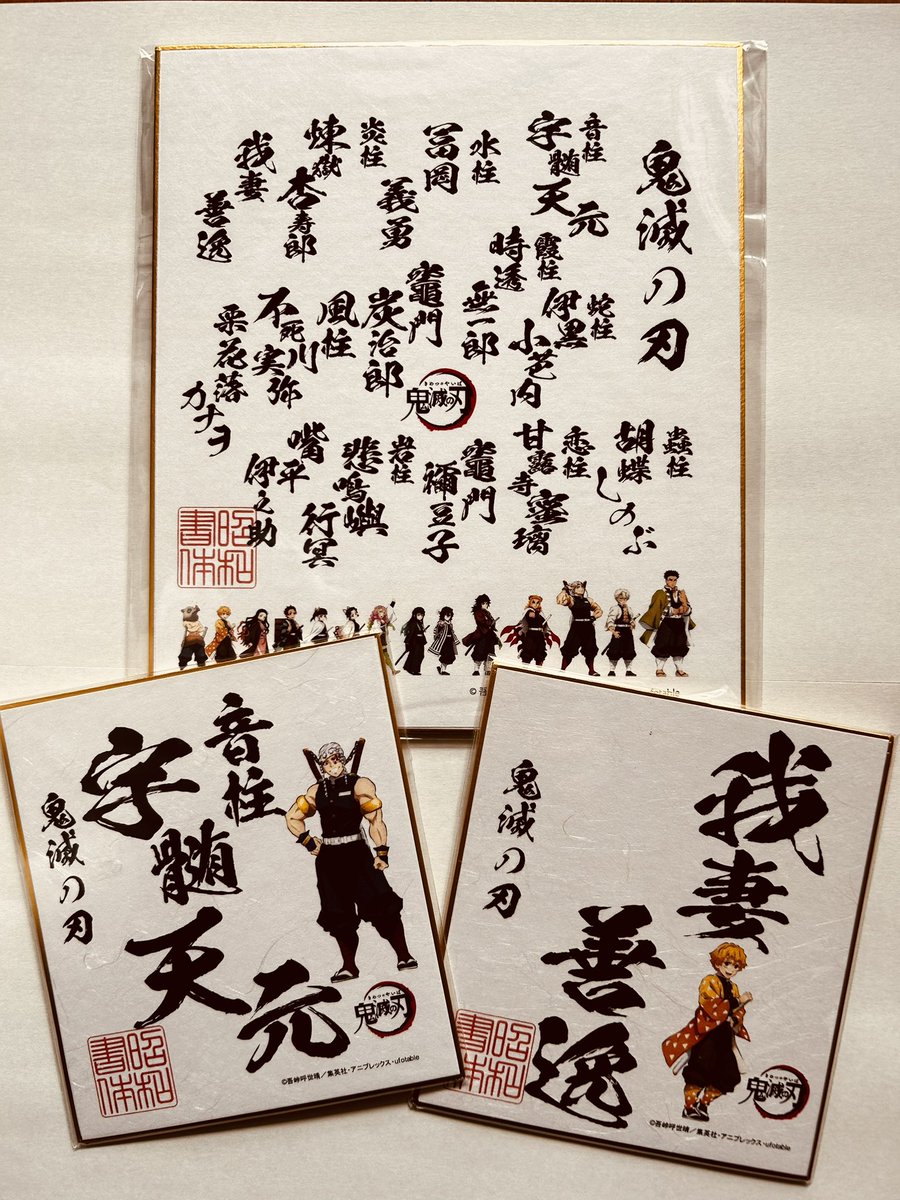 鬼滅の刃
音柱
宇髄天元
水柱
冨岡義勇
炎柱
煉獄杏寿郎
我妻善逸
蛇柱
伊黒小芭内
霞柱
時透無一郎
竈門炭治郎
風柱
不死川実弥
栗花落カナヲ
蟲柱
胡蝶しのぶ
恋柱
甘露寺蜜璃
竈門禰豆子
岩柱
悲鳴嶼行冥
嘴平伊之助
きめつのやいば
鬼滅の刃
昭和書体
ufotable
音柱
宇髄天元
鬼滅の刃
昭和書体
きめつのやいば
鬼滅の刃
©吾峠呼世晴／集英社・アニプレックス・ufotable
我妻善逸
鬼滅の刃
昭和書体
きめつのやいば
鬼滅の刃
©吾峠呼世晴／集英社・アニプレックス・ufotable